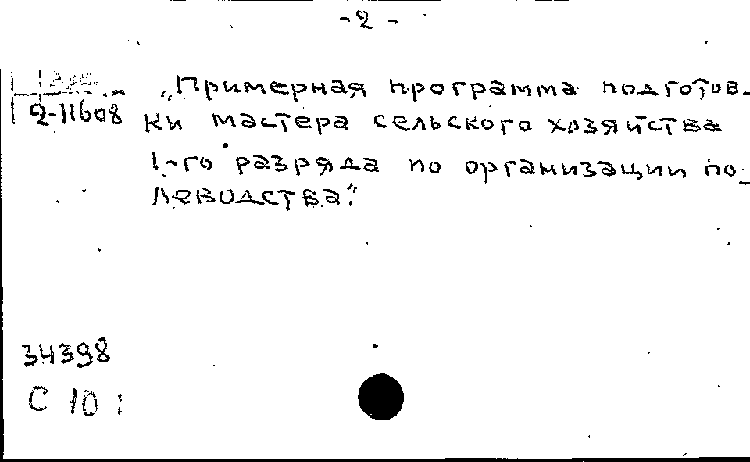 - 2 -
„Примерная программа подготов-
2-11608
ки мастера сельского хозяйства
1-го разряда по организации по-
леводства".
34398
С 10